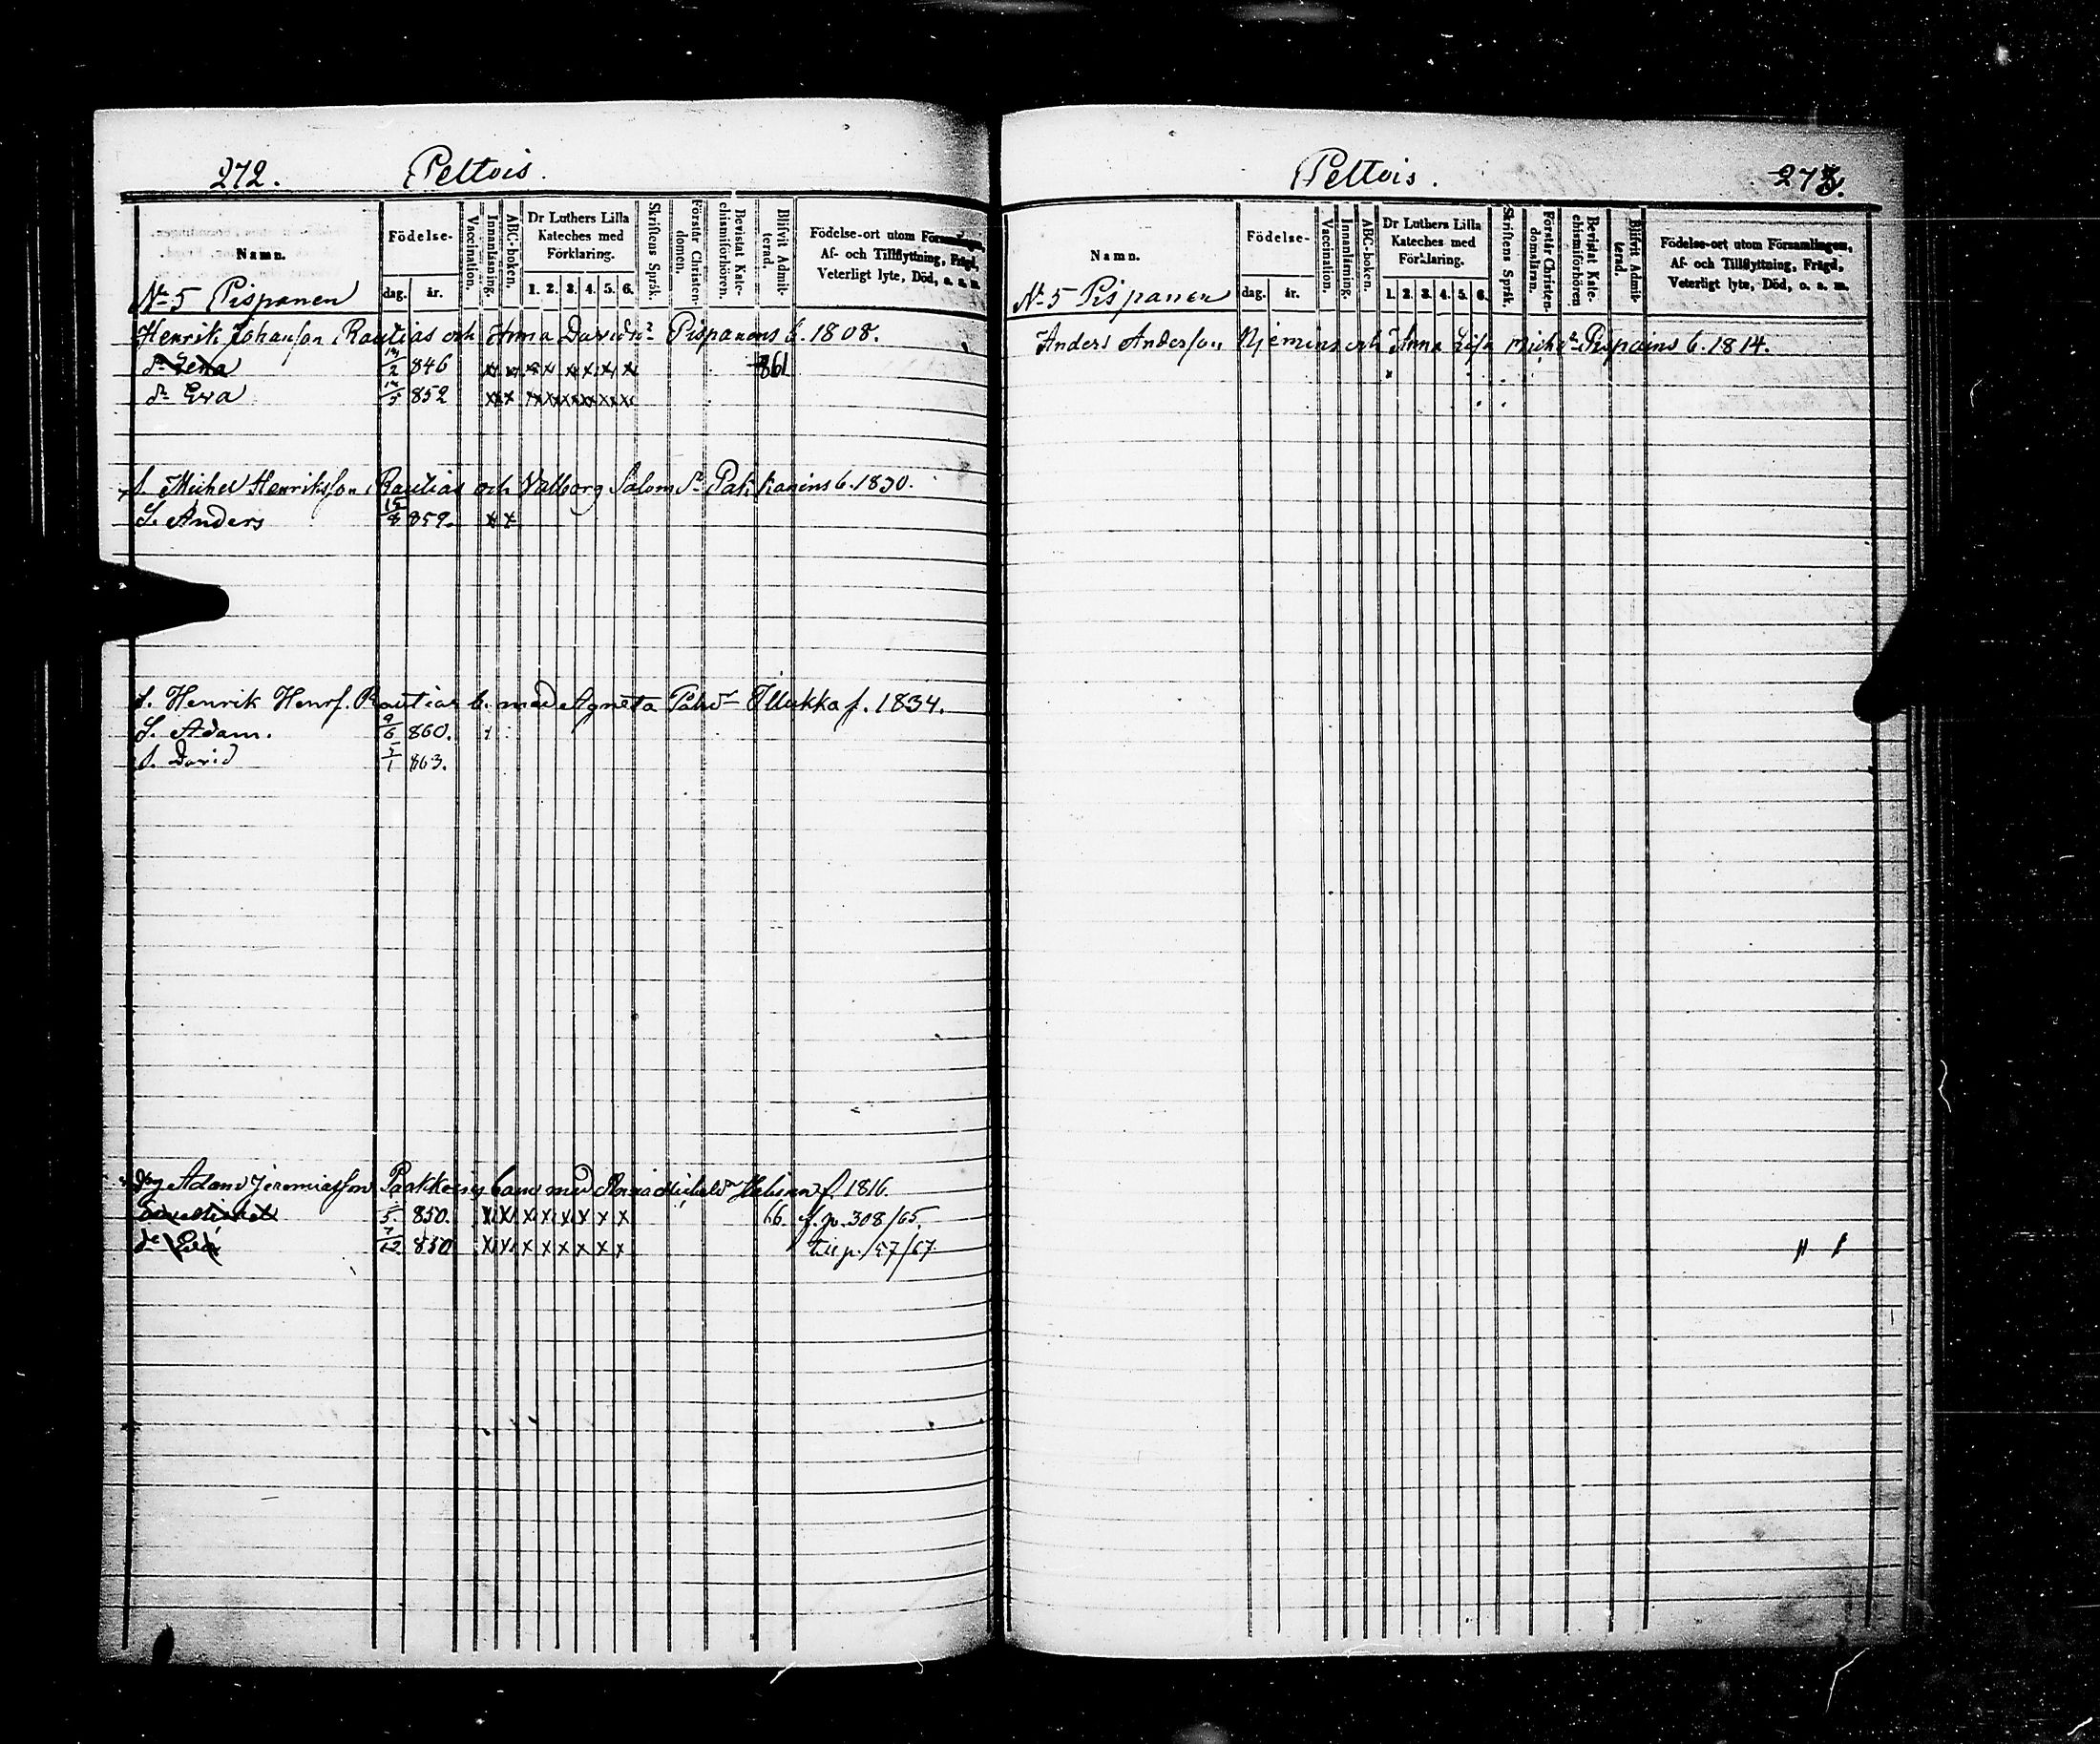 272. Peltois.
Namn.
Födelse-
dag. år.
Vaccination.
Innanläsning.
ABC-boken.
Dr Luthers Lilla Kateches med Förklaring.
1. 2. 3. 4. 5. 6.
Skriftens Språk.
Förstår Christendomen.
Bevistat Katechismiförhören.
Blifvit Admitterad.
Födelse-ort utom Församlingen, Af- och Tillflyttning, Frägd, Veterligt lyte, Död, o. s. m.
No 5 Pispanen
Henrik Johansson Rautias och Anna Davidsr Pispanens b. 1808.
dr Lena 2 846 x x x x x x x x 861
dr Eva 5 852 x x x x x x x x
s. Michel Henriksson Rautias och Valborg Salomdr Pakkanens b. 1830.
S. Anders 15/8 859. x x
s. Henrik Henrs. Rautias b. med Agneta Påhlsdr Illukka f. 1834.
S. Adam. 9/6 860.
S. David 5/1 863.
Adam Jeremiasson Paakkeins barn med Anna f. 1816.
5. 850. x x x x x x x x 66. f. p. 308/65.
dr Eva 7/12 850 x x x x x x x x till p. 57/67.
Peltois. 273.
Namn.
Födelse-
dag. år.
Vaccination.
Innanläsning.
ABC-boken.
Dr Luthers Lilla Kateches med Förklaring.
1. 2. 3. 4. 5. 6.
Skriftens Språk.
Förstår Christendomsläran.
Bevistat Katechismiförhören
Blifvit Admitterad.
Födelse-ort utom Församlingen, Af- och Tillflyttning, Frägd, Veterligt lyte, Död, o. s. m.
No 5 Pispanen
Anders Andersson Niemins och Anna Lisa Michsdr Pispains b. 1814.